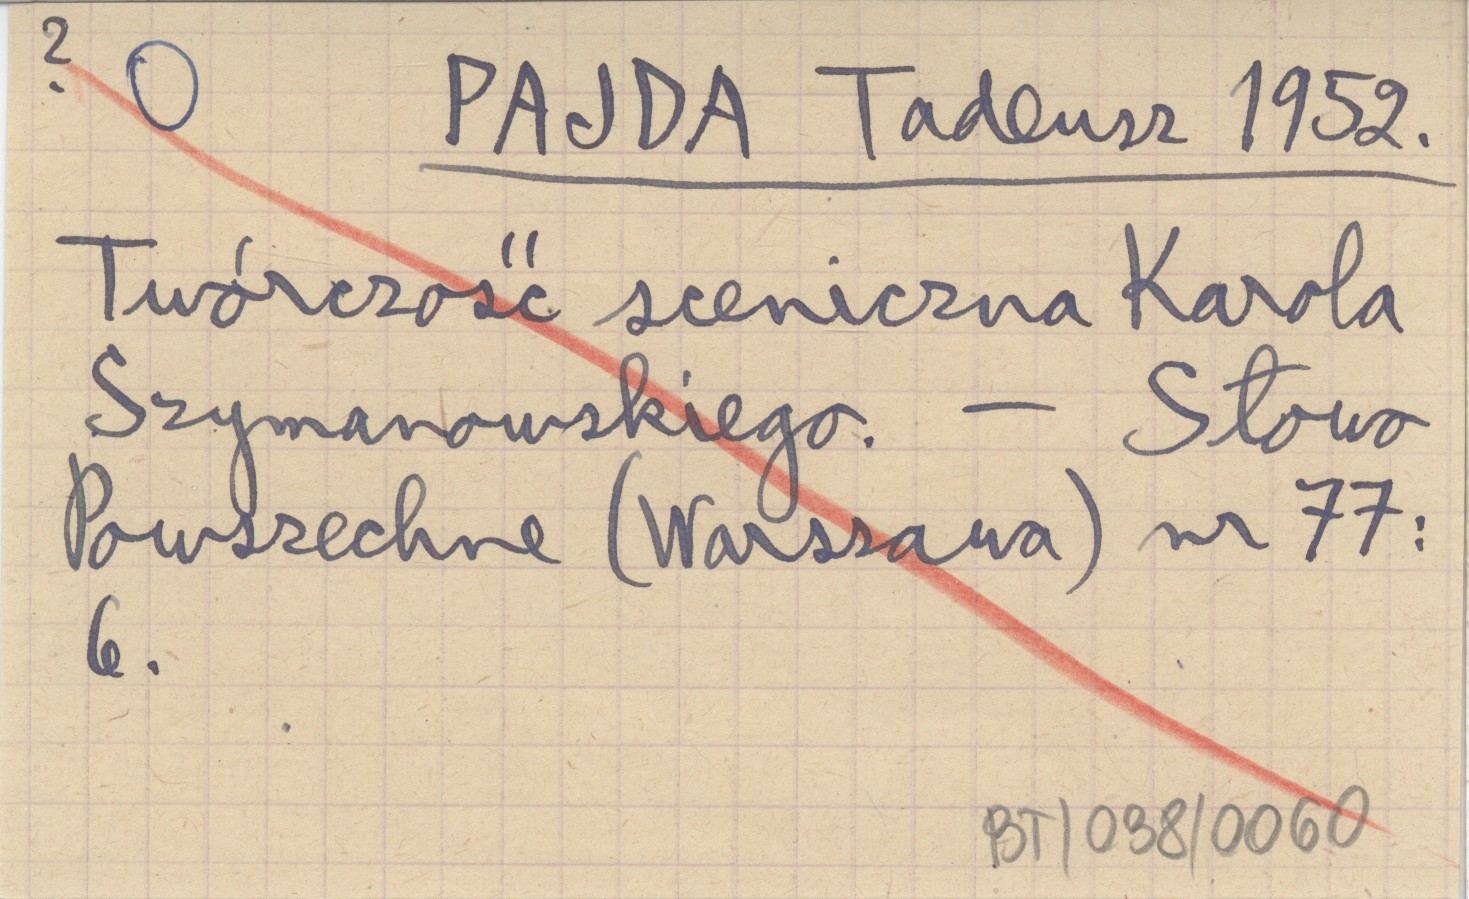 ? O PAJDA Tadeusz 1952.
Twórczość sceniczna Karola
Szymanowskiego. — Słowo
Powszechne (Warszawa) nr 77:
6.
BT/038/0060